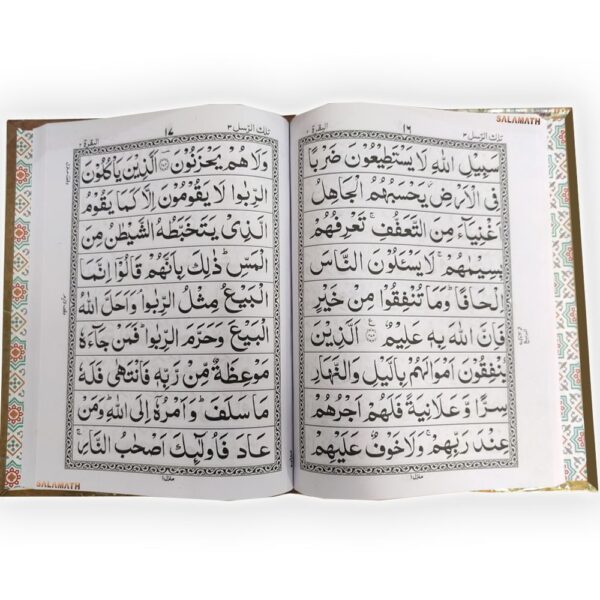 SALAMATH
تلك الرسل ٣
١٦
البقرة ٢
سَبِيْلِ اللّٰهِ لَا يَسْتَطِيْعُوْنَ ضَرْبًا
فِى الْاَرْضِ ۫ يَحْسَبُهُمُ الْجَاهِلُ
اَغْنِيَآءَ مِنَ التَّعَفُّفِ ۚ تَعْرِفُهُمْ
بِسِيْمٰىهُمْ ۚ لَا يَسْئَلُوْنَ النَّاسَ
اِلْحَافًا ؕ وَمَا تُنْفِقُوْا مِنْ خَيْرٍ
فَاِنَّ اللّٰهَ بِهٖ عَلِيْمٌ ۝ اَلَّذِيْنَ
يُنْفِقُوْنَ اَمْوَالَهُمْ بِالَّيْلِ وَالنَّهَارِ
سِرًّا وَّعَلَانِيَةً فَلَهُمْ اَجْرُهُمْ
عِنْدَ رَبِّهِمْ ۚ وَلَا خَوْفٌ عَلَيْهِمْ
منزل ١
تلك الرسل ٣
١٧
البقرة ٢
وَلَا هُمْ يَحْزَنُوْنَ ۝ اَلَّذِيْنَ يَاْكُلُوْنَ
الرِّبٰوا لَا يَقُوْمُوْنَ اِلَّا كَمَا يَقُوْمُ
الَّذِيْ يَتَخَبَّطُهُ الشَّيْطٰنُ مِنَ
الْمَسِّ ؕ ذٰلِكَ بِاَنَّهُمْ قَالُوْٓا اِنَّمَا
الْبَيْعُ مِثْلُ الرِّبٰوا ۘ وَاَحَلَّ اللّٰهُ
الْبَيْعَ وَحَرَّمَ الرِّبٰوا ؕ فَمَنْ جَآءَهٗ
مَوْعِظَةٌ مِّنْ رَّبِّهٖ فَانْتَهٰى فَلَهٗ
مَا سَلَفَ ؕ وَاَمْرُهٗٓ اِلَى اللّٰهِ ؕ وَمَنْ
عَادَ فَاُولٰٓئِكَ اَصْحٰبُ النَّارِ ۚ
منزل ١
SALAMATH